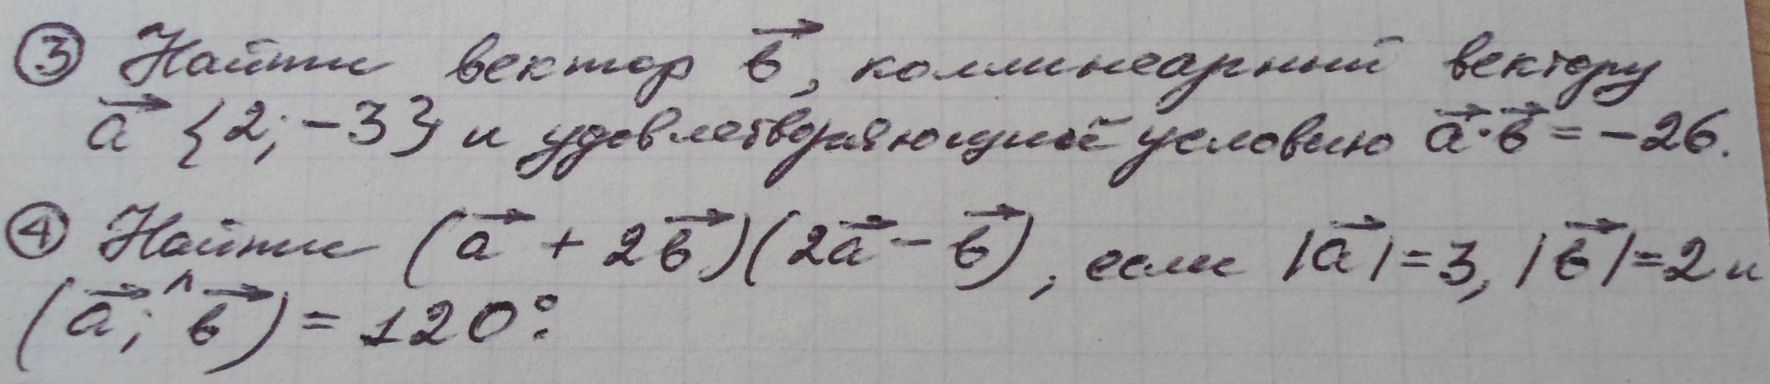 ③ Найти вектор в⃗, коллинеарный вектору
а⃗ {2; -3} и удовлетворяющий условию а⃗·в⃗ = -26.
④ Найти (а⃗ + 2в⃗)(2а⃗ - в⃗), если |а⃗|=3, |в⃗|=2 и
(а⃗;^в⃗) = 120°.